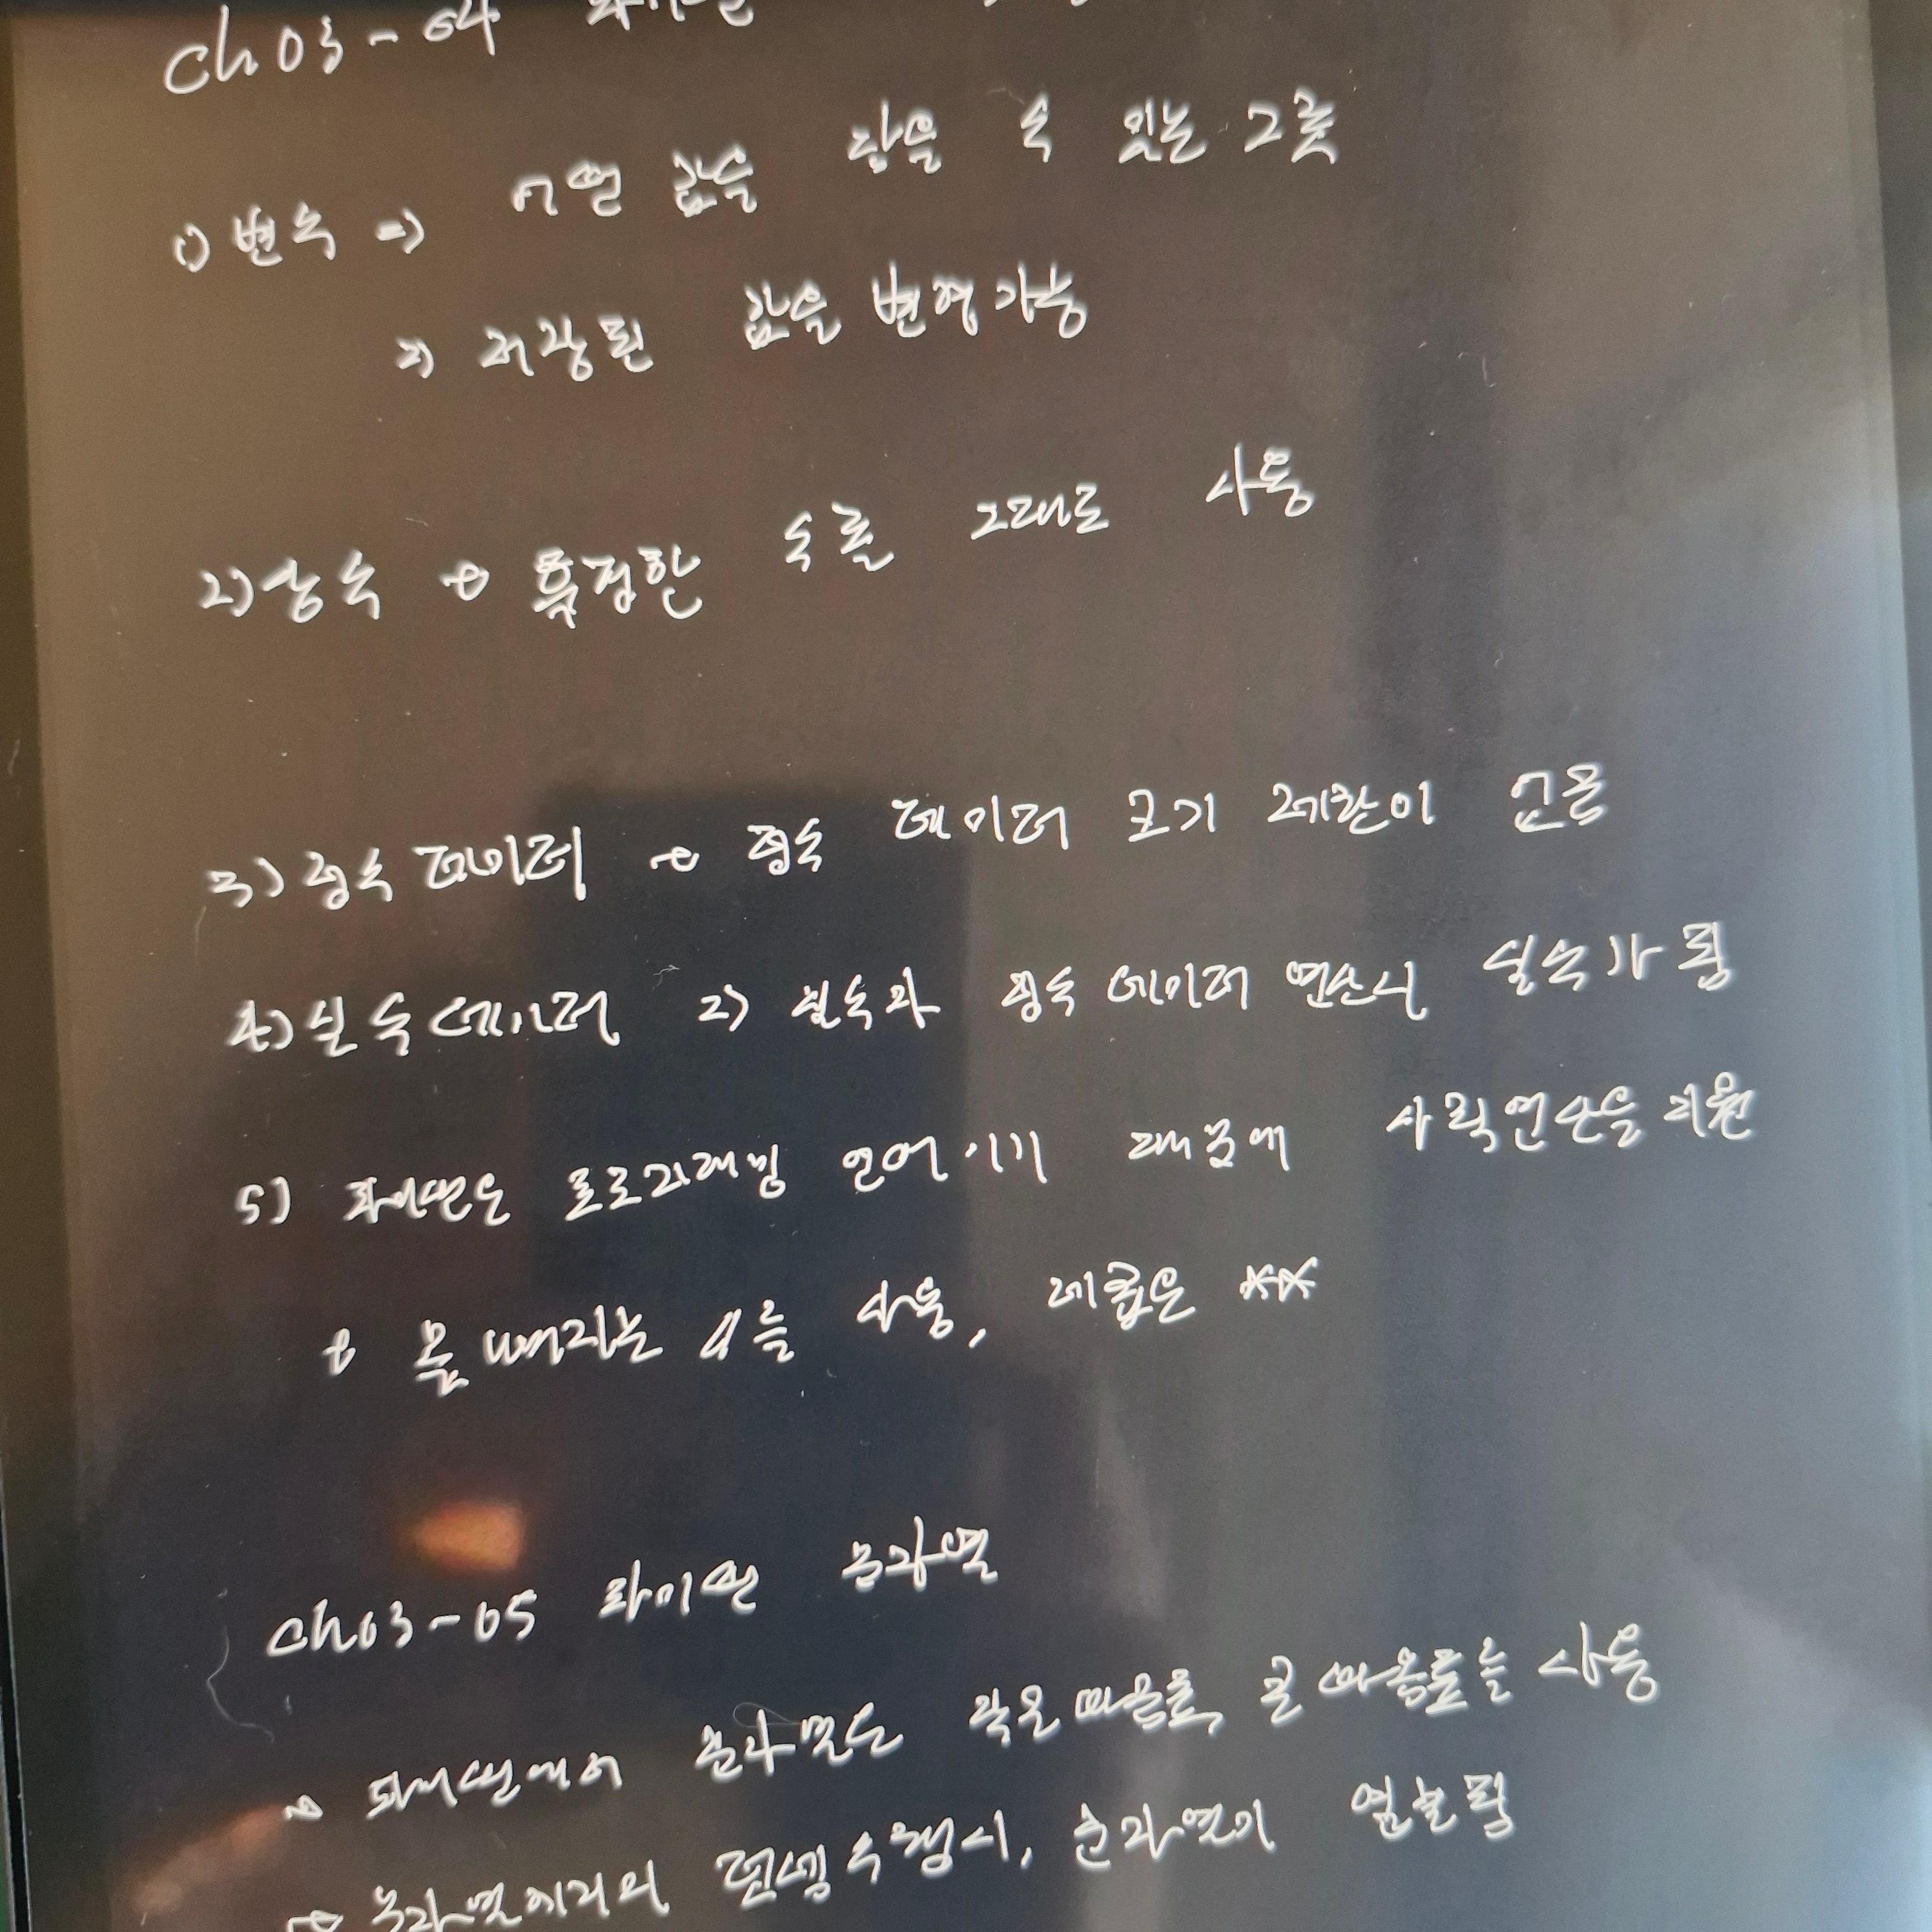 ch03-04 파이썬
1) 변수 => 어떤 값을 담을 수 있는 그릇
=> 저장된 값을 변경가능
2) 상수 → 특정한 수를 그대로 사용
3) 정수 데이터 → 정수 데이터 크기 제한이 없음
4) 실수 데이터 => 실수와 정수 데이터 연산시 실수가 됨
5) 파이썬은 프로그래밍 언어이기 때문에 사칙연산을 지원
→ 몫 나머지는 를 사용, 제곱은 **
ch03-05 파이썬 문자열
→ 파이썬에서 문자열은 작은 따옴표, 큰 따옴표를 사용
→ 문자열끼리의 덧셈 수행시, 문자열이 연결됨